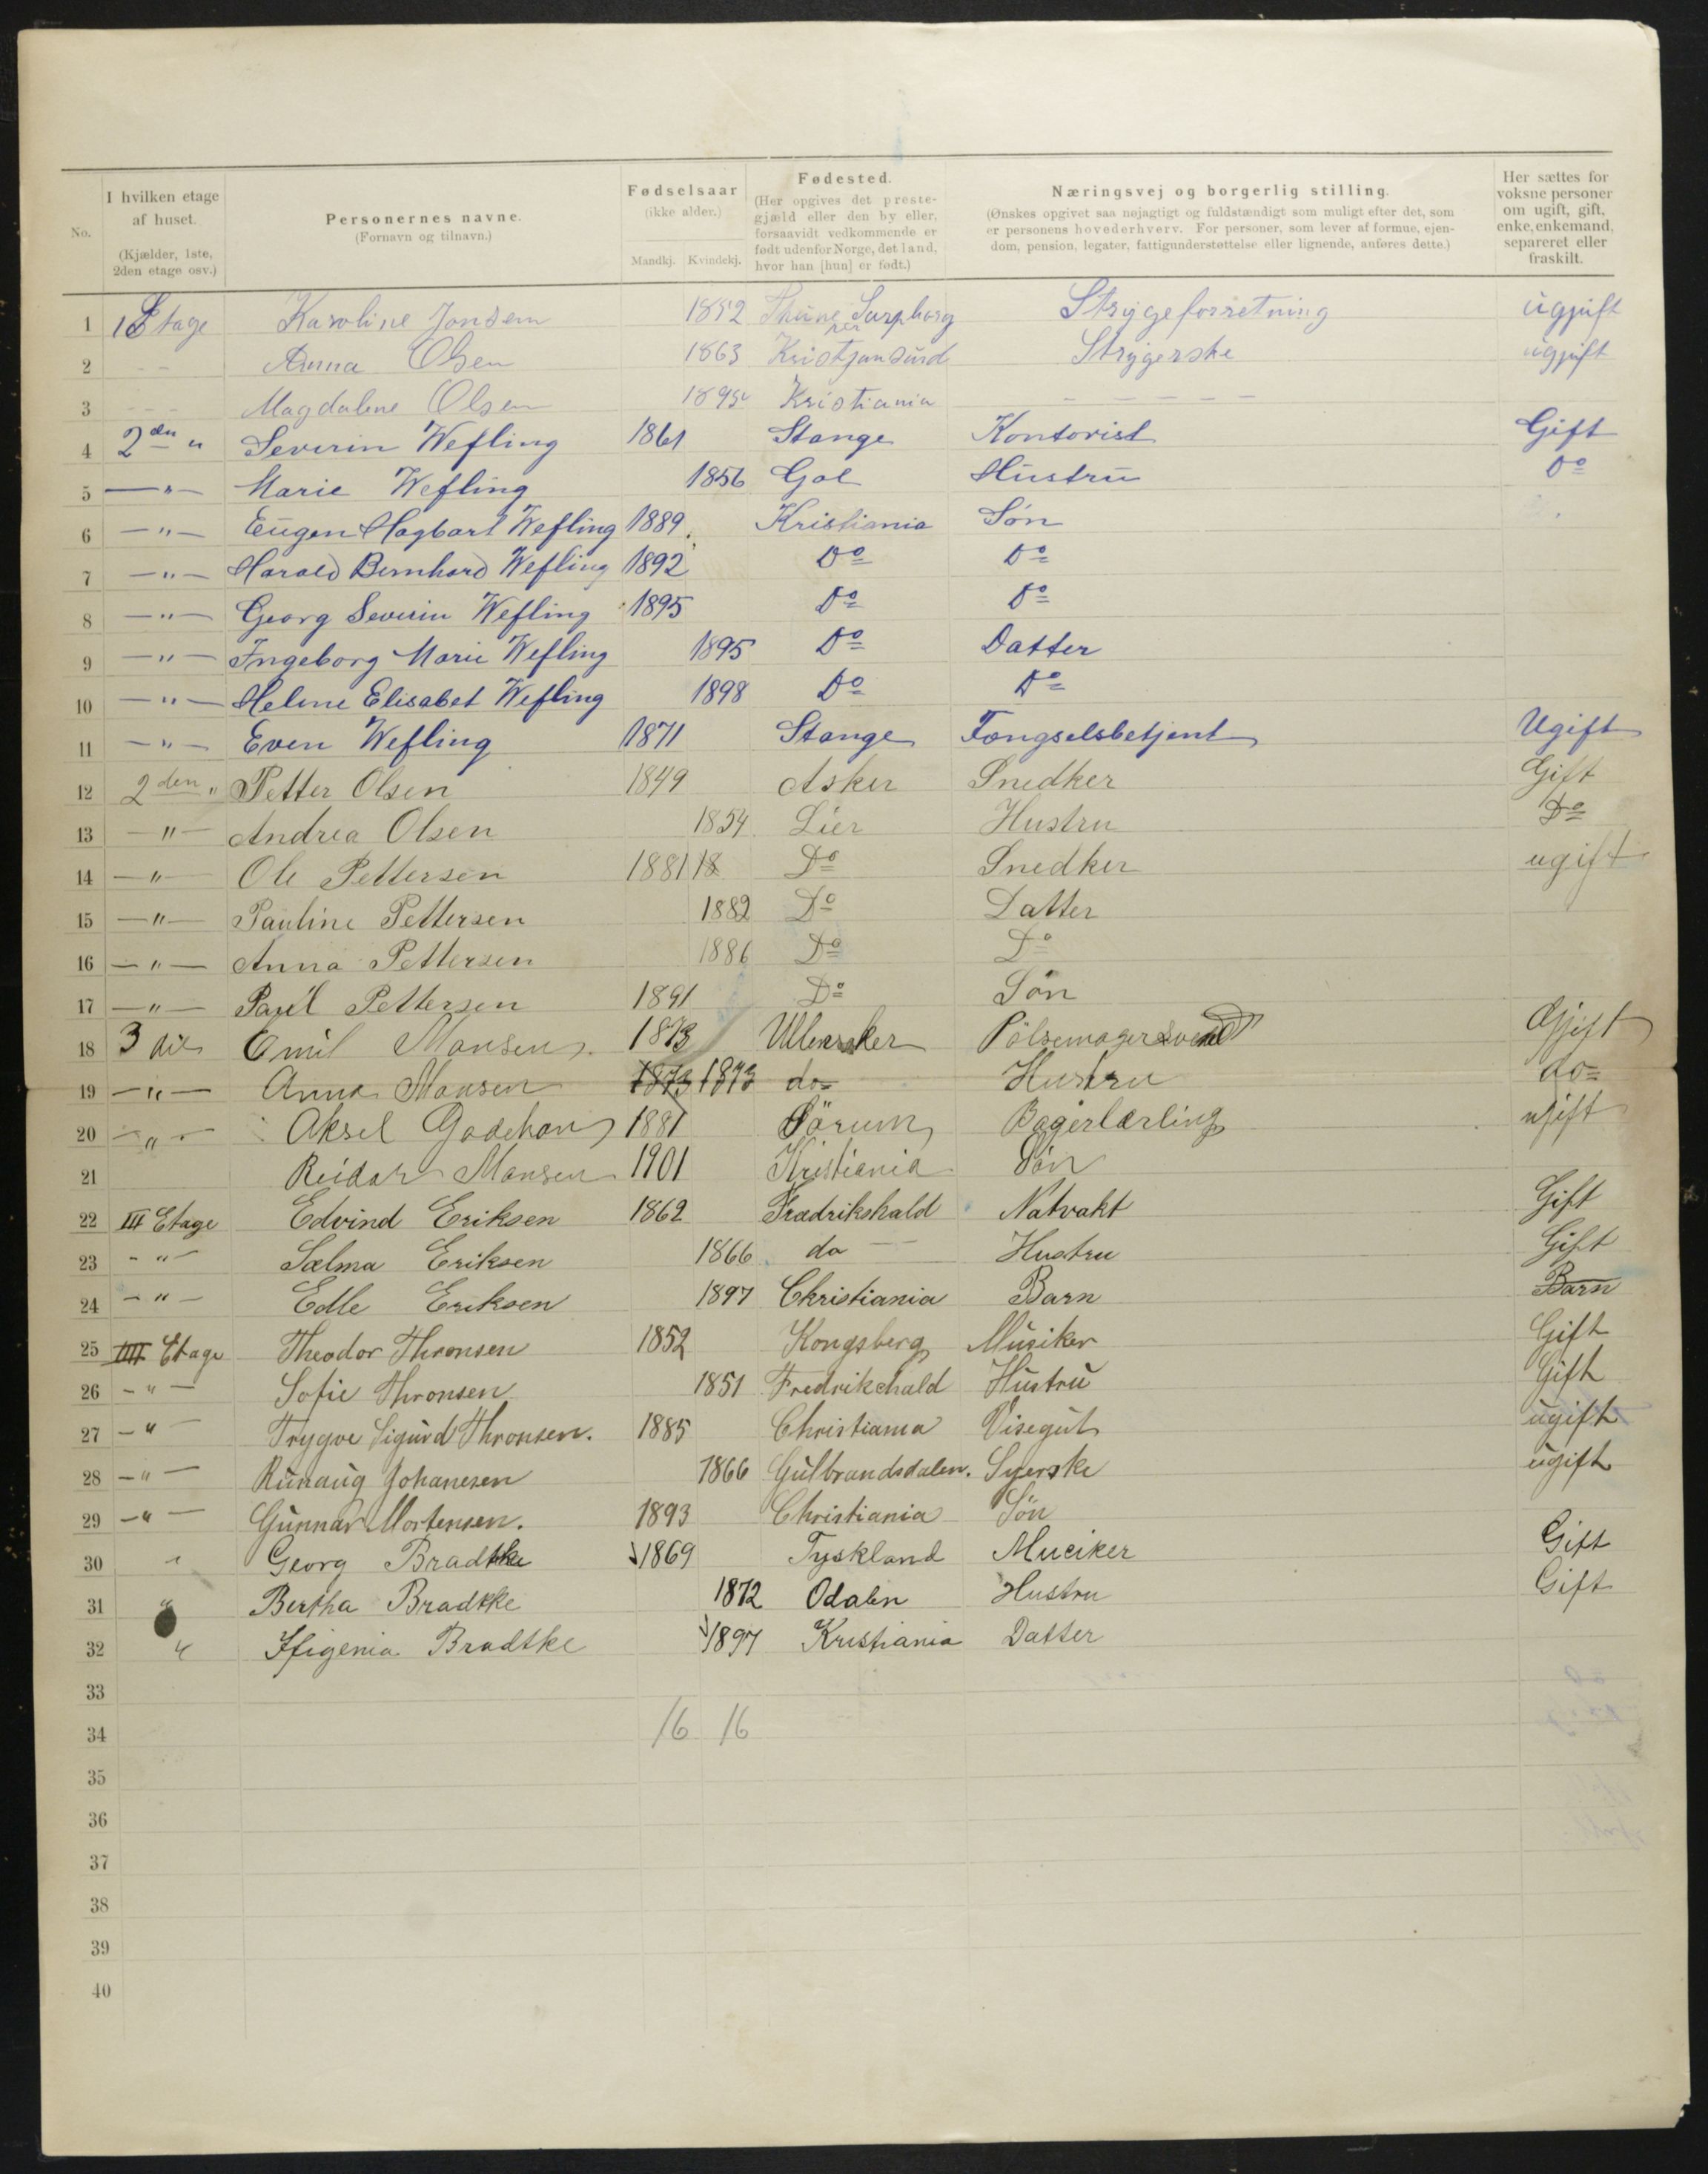 No. I hvilken etage af huset. (Kjælder, 1ste, 2den etage osv.) Personernes navne. (Fornavn og tilnavn.) Fødselsaar (ikke alder.) Mandkj. Kvindekj. Fødested. (Her opgives det prestegjæld eller den by eller, forsaavidt vedkommende er født udenfor Norge, det land, hvor han [hun] er født.) Næringsvej og borgerlig stilling. (Ønskes opgivet saa nøjagtigt og fuldstændigt som muligt efter det, som er personens hovederhverv. For personer, som lever af formue, ejendom, pension, legater, fattigunderstøttelse eller lignende, anføres dette.) Her sættes for voksne personer om ugift, gift, enke, enkemand, separeret eller fraskilt.
1 1 Etage Karoline Jonsen 1852 Thune per Sarpborg Strygeforretning ugjift
2 - - Anna Olsen 1863 Kristjansund Strygerske ugjift
3 - - - Magdalene Olsen Kristiania - - - - -
4 2den " Severin Wefling 1861 Stange Kontorist Gift
5 — " — Marie Wefling 1856 Gol Hustru Do
6 — " — Eugen Hagbart Wefling 1889. Kristiania Søn
7 — " — Harald Bernhard Wefling 1892 Do Do
8 — " — Georg Severin Wefling 1895 Do Do
9 — " — Ingeborg Marie Wefling 1895 Do Datter
10 — " — Helene Elisabet Wefling 1898 Do Do
11 — " — Even Wefling 1871 Stange Fængselsbetjent Ugift
12 2den " Petter Olsen 1849 Asker Snedker Gift
13 — " — Andrea Olsen 1854 Lier Hustru Do
14 — " — Ole Pettersen 1881 18 Do Snedker ugift
15 — " — Pauline Pettersen 1882 Do Datter
16 — " — Anna Pettersen 1886 Do Do
17 — " — Paul Pettersen 1891 Do Søn
18 3 die Emil Mansen 1873 Ullensaker Pölsemagersvend Gjift
19 — " — Anna Mansen 1873 1873 do Hustru do
20 — " — Aksel 1881 Sörum Bagerlærling ugift
21 Reidar Mansen 1901 Kristiania Sön
22 III Etage Edvind Eriksen 1862 Fradrikshald Natvakt Gift
23 - " - Selma Eriksen 1866 do — Hustru Gift
24 - " - Edle Eriksen 1897 Christiania Barn Barn
25 IIII Etage Theodor Thronsen 1852 Kongsberg Musiker Gift
26 - " - Sofie Thronsen 1851 Fredrikshald Hustru Gift
27 - " Trygve Sigurd Thronsen. 1885 Christiania Visegut ugift
28 - " - Runaug Johanesen 1866 Gulbrandsdalen. Syerske ugift
29 - " - Gunnar Mortensen. 1893 Christiania Søn
30 " Georg Bradtke 1869 Tyskland Muciker Gift
31 " Bertha Bradtke 1872 Odalen Hustru Gift
32 " Ifigenia Bradtke 1897 Kristiania Datter
33
34 16 16
35
36
37
38
39
40